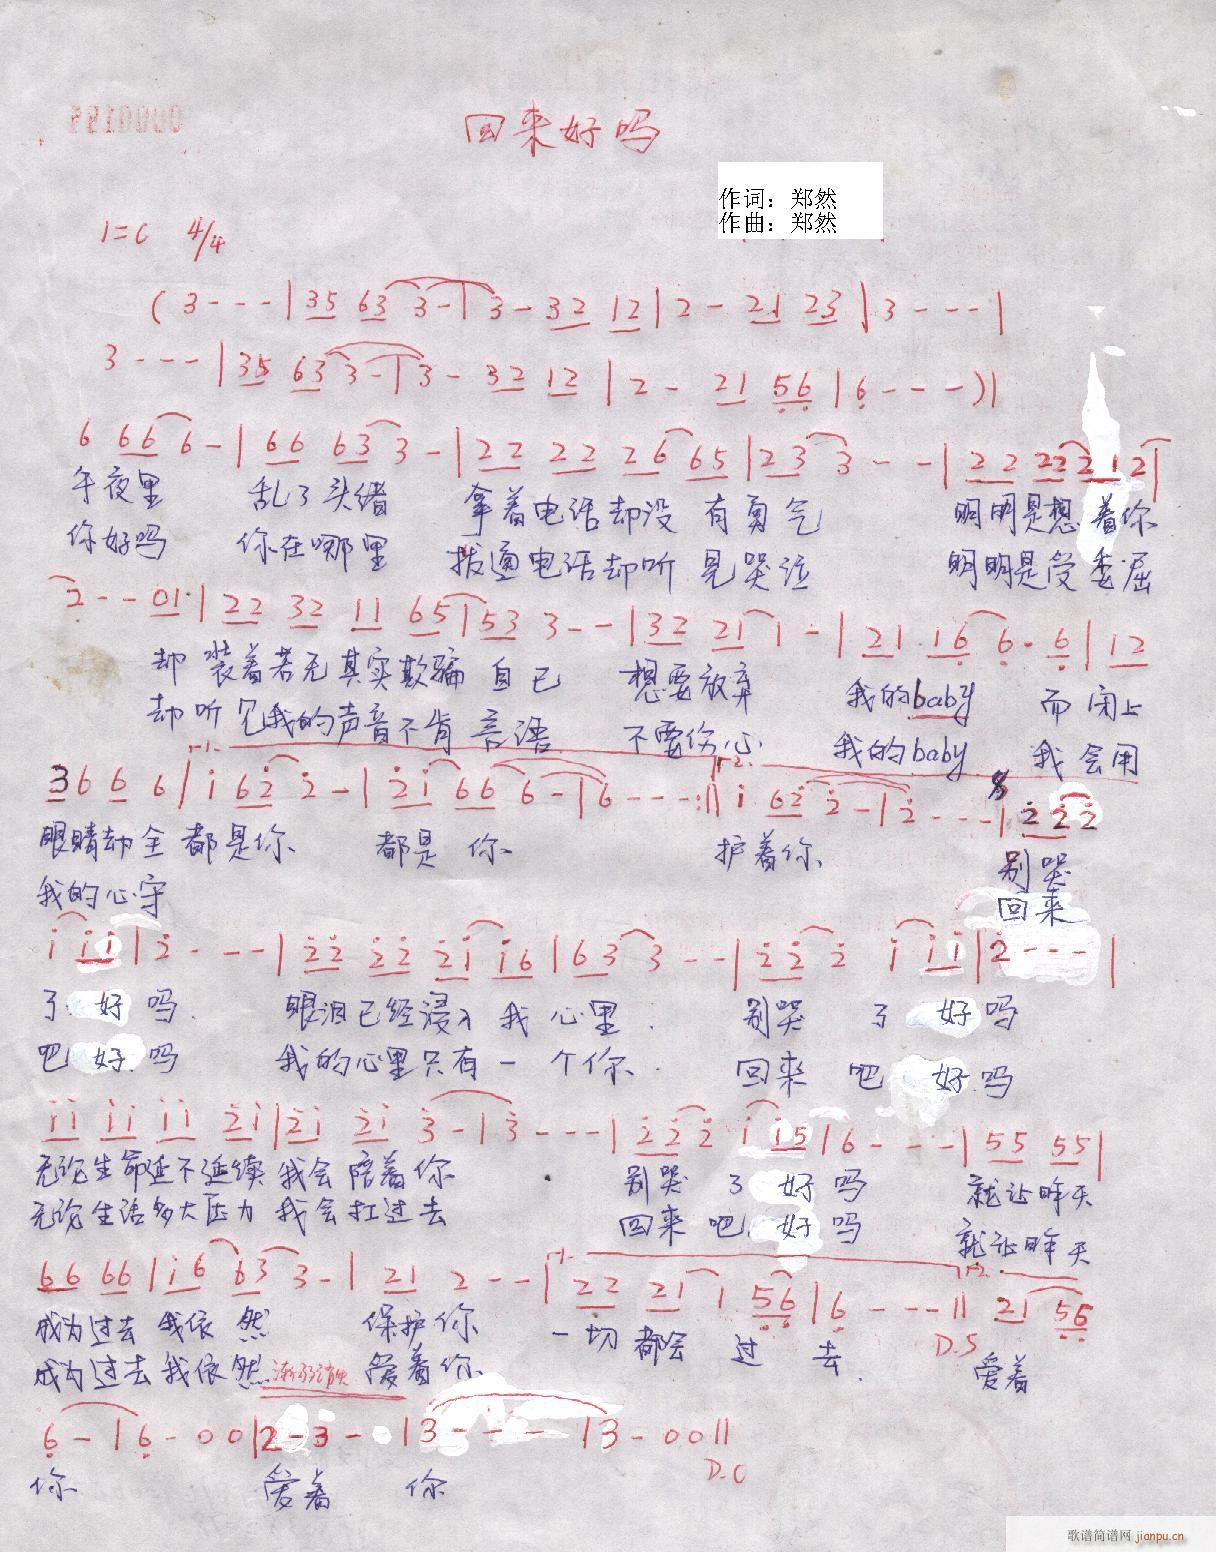 回来好吗
作词：郑然
作曲：郑然
1=C 4/4
( 3 - - - | 35 63 3 - | 3 - 32 12 | 2 - 21 23 | 3 - - - |
3 - - - | 35 63 3 - | 3 - 32 12 | 2 - 21 56 | 6 - - - ) |
6 66 6 - | 66 63 3 - | 22 22 26 65 | 23 3 - - | 22 22 21 2 |
午夜里 乱了头绪 拿着电话却没有勇气 明明是想着你
你好吗 你在哪里 拨通电话却听见哭泣 明明是受委屈
2 - - 01 | 22 32 11 65 | 53 3 - - | 32 21 1 - | 21 16 6 · 6 | 12
却装着若无其实欺骗自己 想要放弃 我的baby 而闭上
却听见我的声音不肯言语 不要伤心 我的baby 我会用
36 6 6 | i 62 2 - | 2i 66 6 - | 6 - - - :|| i 62 2 - | 2 - - - | 2 22
眼睛却全都是你 都是你 护着你 别哭
我的心守 回来
i ii | 2 - - - | 22 22 2i i6 | 63 3 - - | 22 2 i ii | 2 - - - |
了好吗 眼泪已经浸入我心里 别哭了好吗
吧好吗 我的心里只有一个你 回来吧好吗
ii ii ii 2i | 2i 2i 3 - | 3 - - - | 22 2 i i5 | 6 - - - | 55 55 |
无论生命延不延续我会陪着你 别哭了好吗 就让昨天
无论生活多大压力我会扛过去 回来吧好吗 就让昨天
66 66 | i6 63 3 - | 21 2 - - | 22 21 1 56 | 6 - - - || 21 56
成为过去我依然 保护你 一切都会过去 D.S 爱着
成为过去我依然 爱着你
6 - | 6 - 0 0 | 2 - 3 - · | 3 - - - | 3 - 0 0 ||
D.C
你 爱着你
歌谱简谱网 jianpu.cn